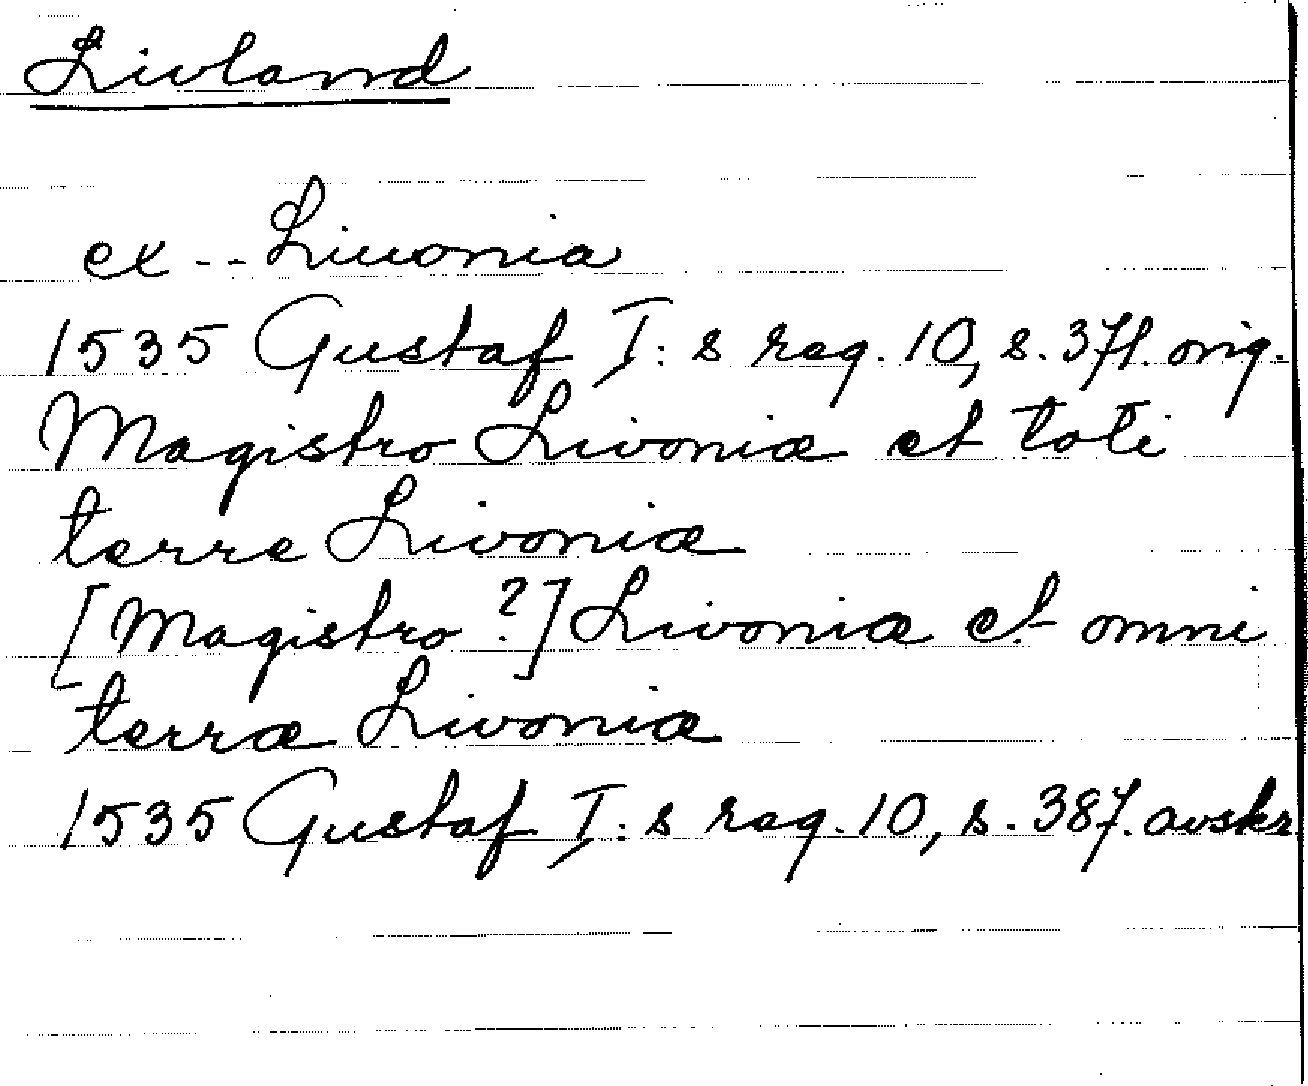 Livland
ex -- Liuonia
1535 Gustaf I:s reg. 10, s. 371. orig.
Magistro Livoniæ et toti
terre Livoniæ
[Magistro ?] Livoniæ et omni
terræ Livoniæ
1535 Gustaf I:s reg. 10, s. 387. avskr.